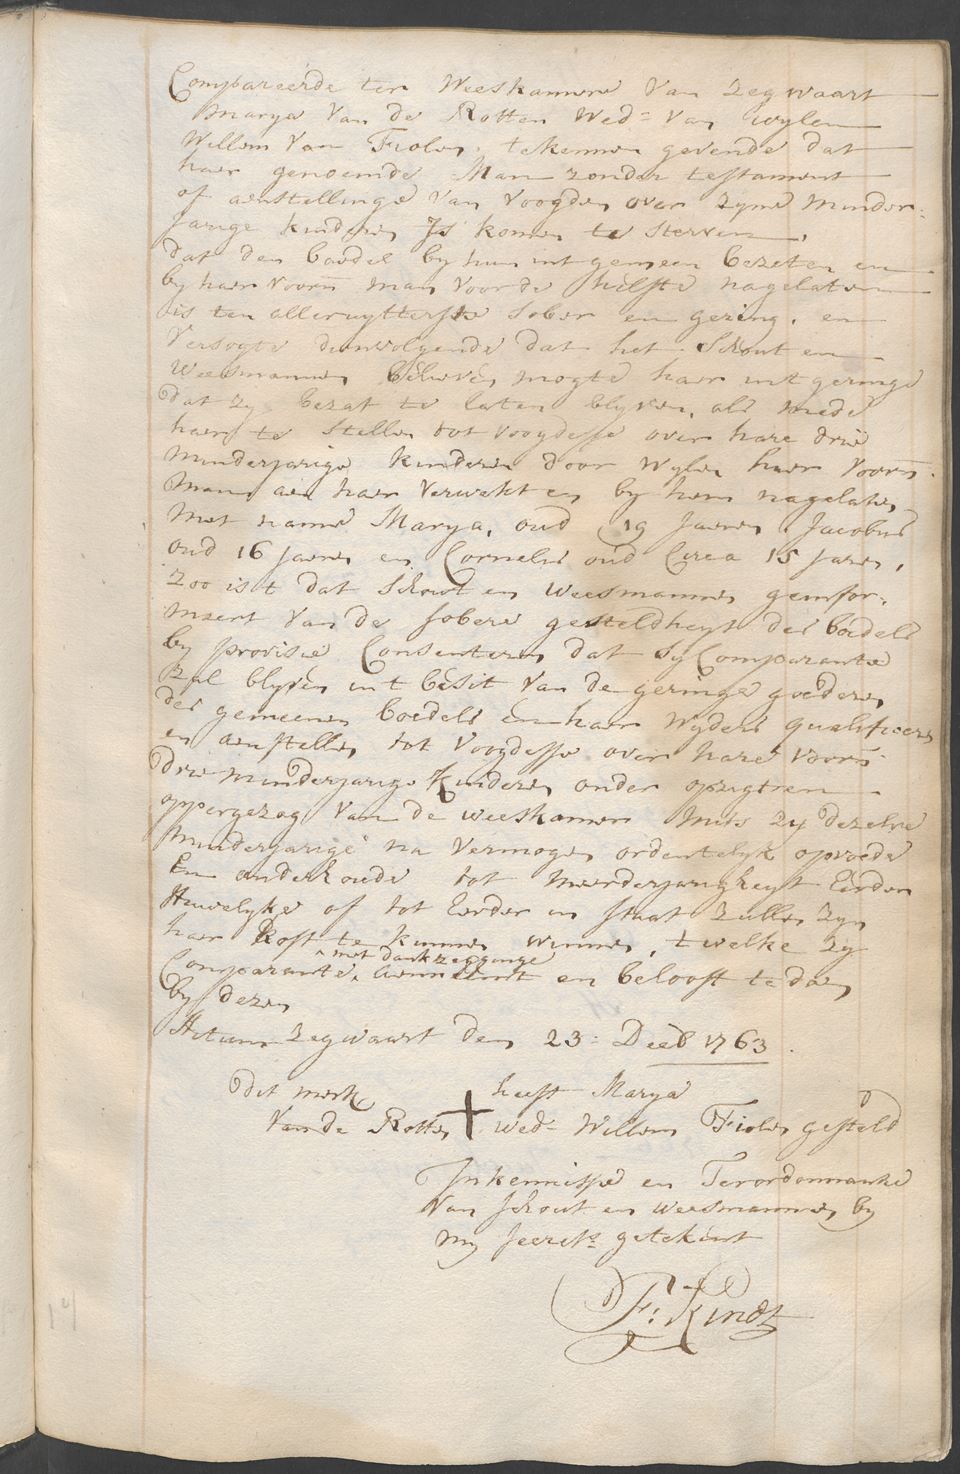 Compareerde ter Weeskamere van Zegwaart
Marya van de Rotten Wed= van wylen
Willem van Fiolen, te kennen gevende dat
haer genoemde Man zonder testament
of aenstellinge van voogden over zyne minder=
jarige kinderen Is komen te sterven,
dat den boedel by hun int gemeen bezeten en
by haer voorn man voor de helfte nagelaten
is ten alleruytterste sober en gering, en
versogte dienvolgende dat het Schout en
Weesmannen believen mogte haer int geringe
dat zy bezat te laten blyven, als mede
haer te stellen tot voogdesse over hare drie
minderjarige kinderen door wylen haer voorn
man aen haer verwekt en by hem nagelaten
met name Marya, oud 19 Jaeren Jacobus
oud 16 Jaeren en Cornelis oud Circa 15 Jaren,
Zoo ist dat Schout en Weesmannen geinfor=
meert van de sobere gesteldheyt des boedels
by provisie Consenteren dat sy Comparante
zal blyven int besit van de geringe goederen
des gemeenen boedels en haer wyders qualificeren
en aenstellen tot voogdesse over hare voorn
drie minderjarige kinderen onder opzigt en
oppergezag van de weeskamer mits zy dezelve
minderjarige na vermogen ordentelyk opvoede
En onderhoude tot meerderjarigheyt Eerder
Huwelyke of tot Eerder in staat zullen zyn
haer kost te kunnen winnen, t welke zy
met dankzegginge
Comparante aenneemt en belooft te doen
by dezen
Actum Zegwaart den 23= Decb 1763.
Dit merk heeft Marya
van de Rotten + wed= Willem Fiolen gesteld
In kennisse en Ter ordonnantie
van schout en weesmannen by
my secrets getekent
F: Kindt